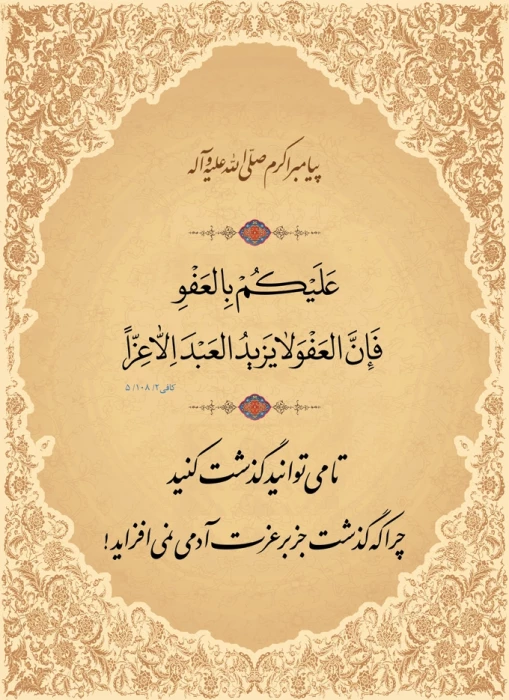 پیامبر اکرم صلّی الله علیه و آله
عَلَیْکُمْ بِالعَفْوِ
فَإِنَّ العَفْوَ لا یَزیدُ العَبْدَ اِلاّ عِزّاً
کافی۲/ ۱۰۸/ ۵
تا می توانید گذشت کنید
چرا که گذشت جز بر عزت آدمی نمی افزاید!